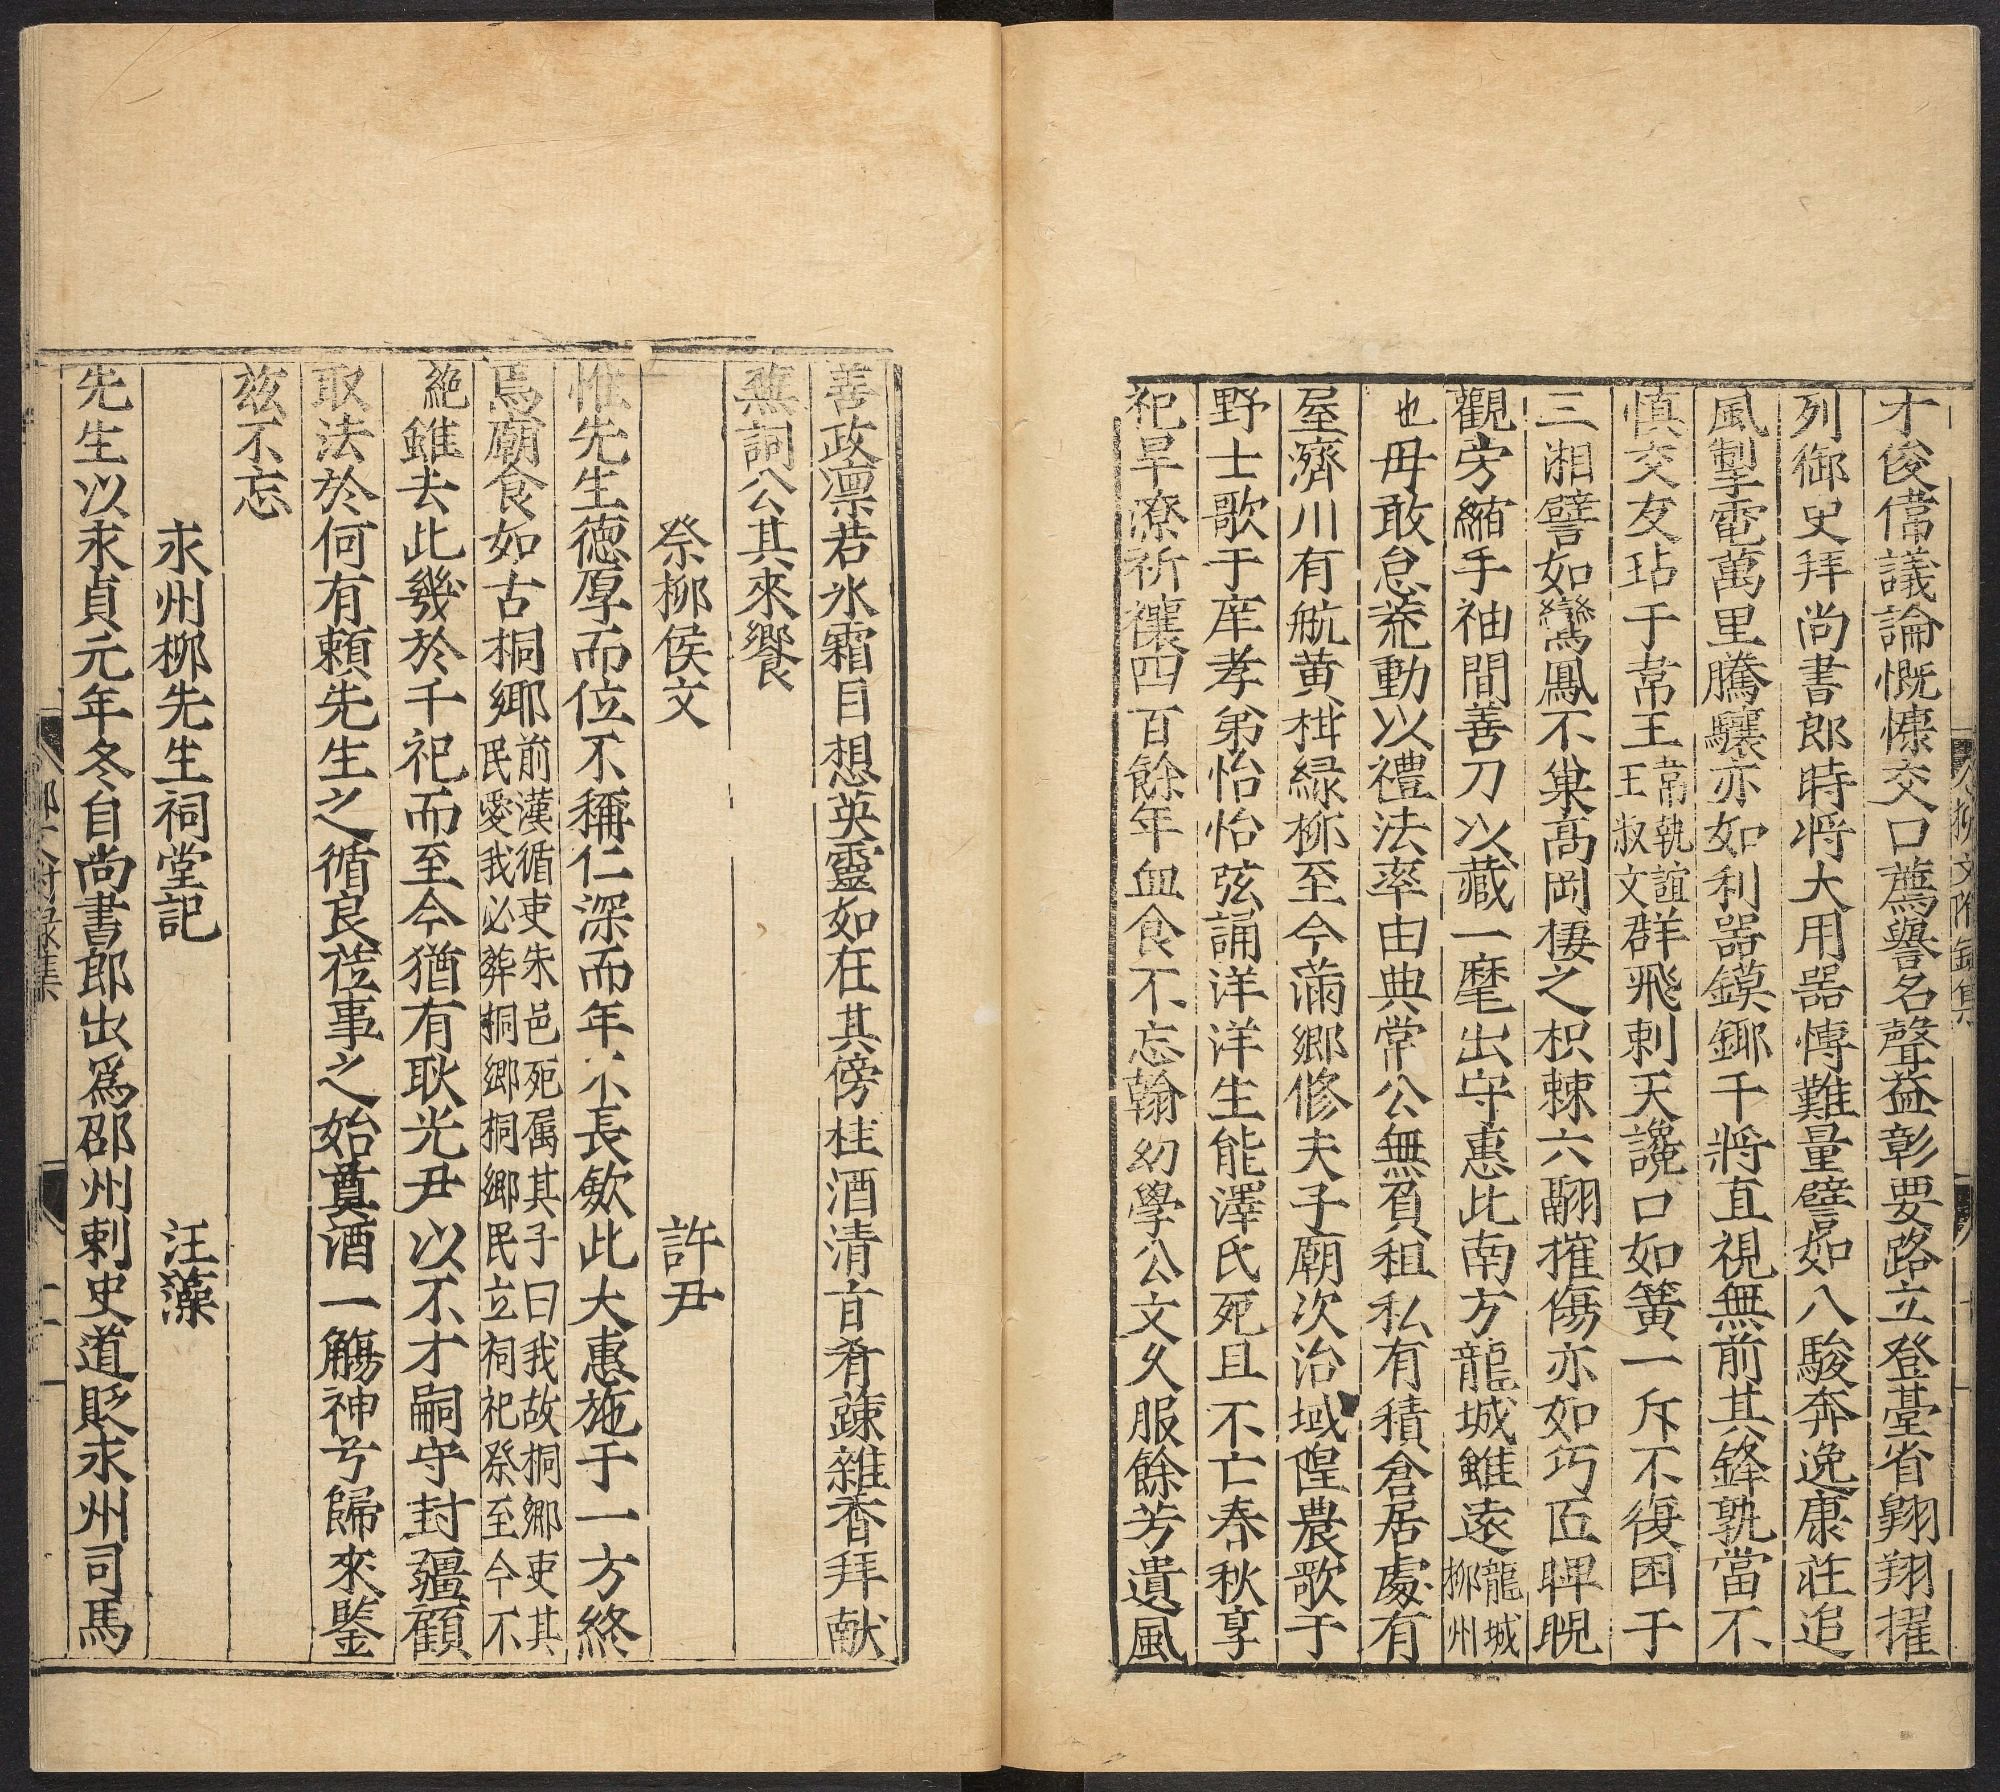 才俊儅議論慨慷交口薦譽名聲益彰要路立登臺省翱翔擢
列御史拜尚書郎時将大用器愽難量譬如八駿奔逸康莊追
風掣電萬里騰驤亦如利器鏌鋣千將直視無前其鋒孰當不
慎交友玷于韋王韋執誼王叔文群飛刺天讒口如簧一斥不復困于
三湘譬如鸞鳳不巢高岡棲之枳棘六翮摧傷亦如巧匠睥睨
觀旁縮手袖間善刀以藏一麾出守惠此南方龍城雖遠龍城柳州
也毋敢怠荒動以禮法率由典常公無負租私有積倉居處有
屋濟川有航黄柑緑柳至今滿鄉修夫子廟次治城隍農歌于
野士歌于庠孝弟怡怡弦誦洋洋生能澤民死且不亡春秋享
祀旱潦祈禳四百餘年血食不忘翰幼學公文久服餘芳遺風
善政凛若氷霜目想英靈如在其傍桂酒清肴蔬雜香拜献
蕪詞公其來饗
祭柳侯文
許尹
惟先生德厚而位不稱仁深而年不長歛此大惠施于一方終
焉廟食如古桐鄉前漢循吏朱邑死属其子曰我故桐鄉吏其民愛我必葬桐鄉桐鄉民立祠祀祭至今不
絶雖去此幾於千祀而至今猶有耿光尹以不才嗣守封疆顧
取法於何有頼先生之循良莅事之始奠酒一觴神兮歸來鑒
兹不忘
永州柳先生祠堂記
汪藻
先生以永貞元年冬自尚書郎出爲邵州刺史道貶永州司馬